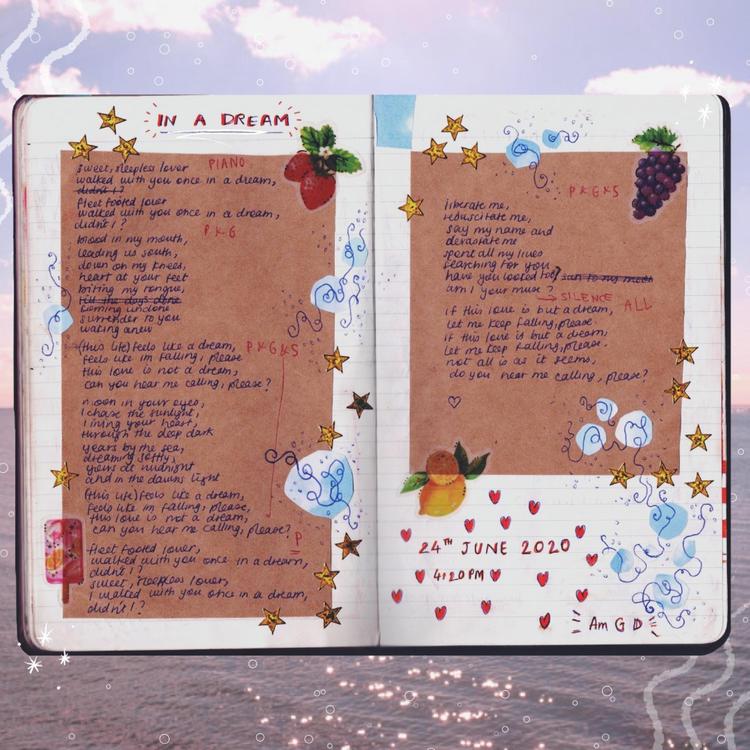 IN A DREAM
PIANO
sweet, sleepless lover
walked with you once in a dream,
didnt I?
fleet footed lover
walked with you once in a dream,
didnt I?
P K G
blood in my mouth,
leading us south,
down on my knees,
heart at your feet
biting my tongue,
till the days done
coming undone
surrender to you
waking anew
P K G K S
(this life) feels like a dream,
feels like im falling, please
this love is not a dream,
can you hear me calling, please?
moon in your eyes,
I chase the sunlight,
lining your heart,
through the deep dark
years by the sea,
dreaming softly,
yours at midnight
and in the dawns light
(this life) feels like a dream,
feels like im falling, please,
this love is not a dream,
can you hear me calling, please?
P
fleet footed lover,
walked with you once in a dream,
didnt I?
sweet, reckless lover,
I walked with you once in a dream,
didnt I?
P K G K S
liberate me,
resuscitate me,
say my name and
devastate me
spent all my lives
searching for you
have you looked too?
am I your muse?
SILENCE
ALL
if this love is but a dream,
let me keep falling, please.
if this love is but a dream,
let me keep falling, please.
not all is as it seems,
do you hear me calling, please?
24TH JUNE 2020
4:20PM
Am G D